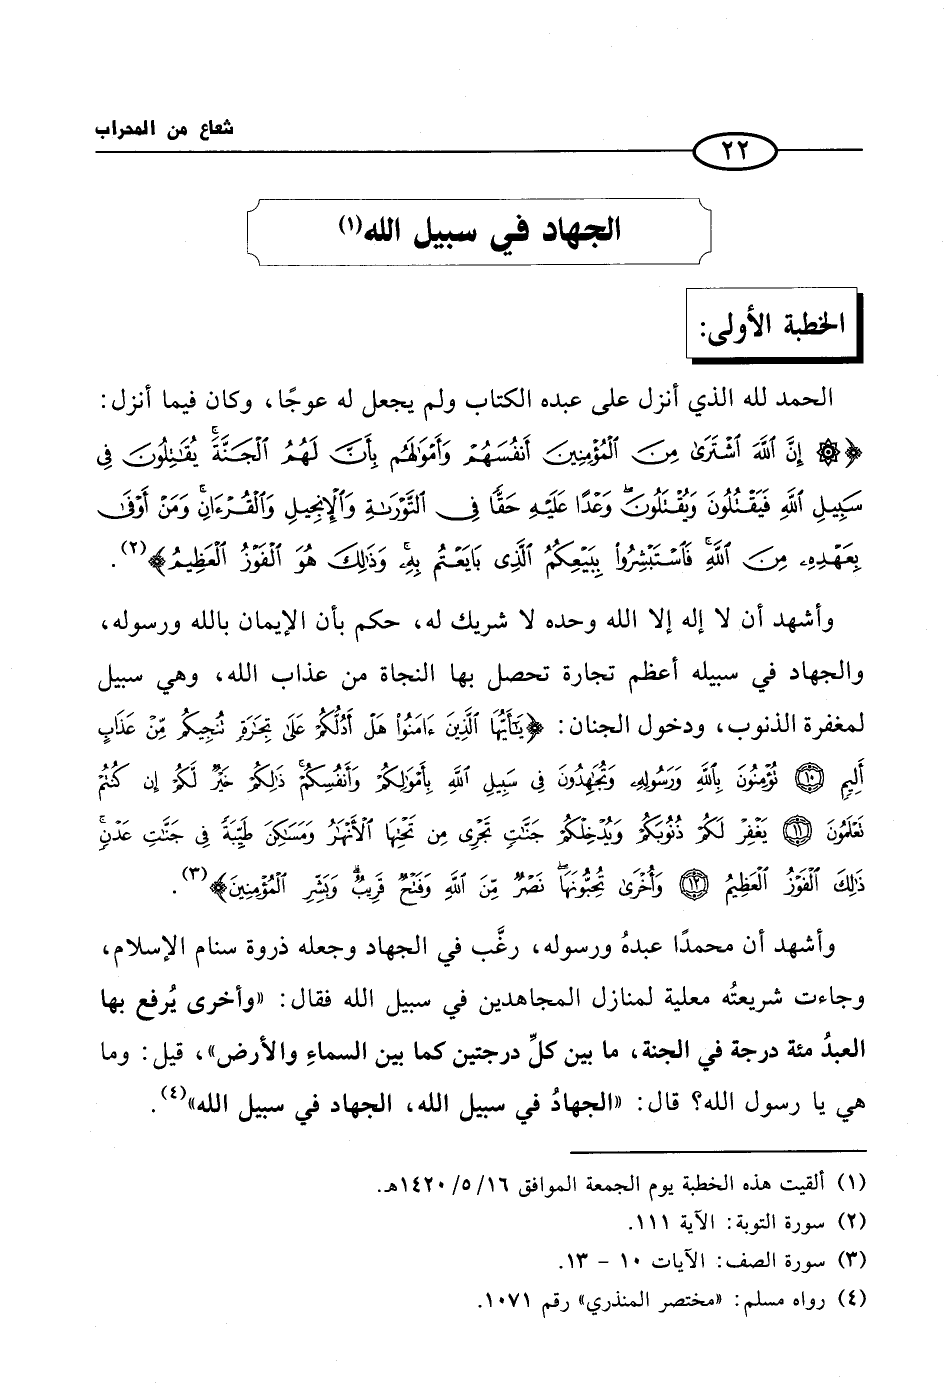 شعاع من المحراب
٢٢
الجهاد في سبيل الله(١)
الخطبة الأولى:
الحمد لله الذي أنزل على عبده الكتاب ولم يجعل له عوجًا، وكان فيما أنزل:
﴿۞ إِنَّ ٱللَّهَ ٱشْتَرَىٰ مِنَ ٱلْمُؤْمِنِينَ أَنفُسَهُمْ وَأَمْوَٰلَهُم بِأَنَّ لَهُمُ ٱلْجَنَّةَ ۚ يُقَٰتِلُونَ فِى
سَبِيلِ ٱللَّهِ فَيَقْتُلُونَ وَيُقْتَلُونَ ۖ وَعْدًا عَلَيْهِ حَقًّا فِى ٱلتَّوْرَىٰةِ وَٱلْإِنجِيلِ وَٱلْقُرْءَانِ ۚ وَمَنْ أَوْفَىٰ
بِعَهْدِهِۦ مِنَ ٱللَّهِ ۚ فَٱسْتَبْشِرُوا۟ بِبَيْعِكُمُ ٱلَّذِى بَايَعْتُم بِهِۦ ۚ وَذَٰلِكَ هُوَ ٱلْفَوْزُ ٱلْعَظِيمُ﴾(٢).
وأشهد أن لا إله إلا الله وحده لا شريك له، حكم بأن الإيمان بالله ورسوله،
والجهاد في سبيله أعظم تجارة تحصل بها النجاة من عذاب الله، وهي سبيل
لمغفرة الذنوب، ودخول الجنان: ﴿يَٰٓأَيُّهَا ٱلَّذِينَ ءَامَنُوا۟ هَلْ أَدُلُّكُمْ عَلَىٰ تِجَٰرَةٍ تُنجِيكُم مِّنْ عَذَابٍ
أَلِيمٍ ۝١٠ تُؤْمِنُونَ بِٱللَّهِ وَرَسُولِهِۦ وَتُجَٰهِدُونَ فِى سَبِيلِ ٱللَّهِ بِأَمْوَٰلِكُمْ وَأَنفُسِكُمْ ۚ ذَٰلِكُمْ خَيْرٌ لَّكُمْ إِن كُنتُمْ
تَعْلَمُونَ ۝١١ يَغْفِرْ لَكُمْ ذُنُوبَكُمْ وَيُدْخِلْكُمْ جَنَّٰتٍ تَجْرِى مِن تَحْتِهَا ٱلْأَنْهَٰرُ وَمَسَٰكِنَ طَيِّبَةً فِى جَنَّٰتِ عَدْنٍ ۚ
ذَٰلِكَ ٱلْفَوْزُ ٱلْعَظِيمُ ۝١٢ وَأُخْرَىٰ تُحِبُّونَهَا ۖ نَصْرٌ مِّنَ ٱللَّهِ وَفَتْحٌ قَرِيبٌ ۗ وَبَشِّرِ ٱلْمُؤْمِنِينَ﴾(٣).
وأشهد أن محمدًا عبدهُ ورسوله، رغَّب في الجهاد وجعله ذروة سنام الإسلام،
وجاءت شريعتُه معلية لمنازل المجاهدين في سبيل الله فقال: «وأخرى يُرفع بها
العبدُ مئة درجة في الجنة، ما بين كلِّ درجتين كما بين السماءِ والأرض»، قيل: وما
هي يا رسول الله؟ قال: «الجهادُ في سبيل الله، الجهاد في سبيل الله»(٤).
(١) ألقيت هذه الخطبة يوم الجمعة الموافق ١٤٢٠/٥/١٦هـ.
(٢) سورة التوبة: الآية ١١١.
(٣) سورة الصف: الآيات ١٠ - ١٣.
(٤) رواه مسلم: «مختصر المنذري» رقم ١٠٧١.